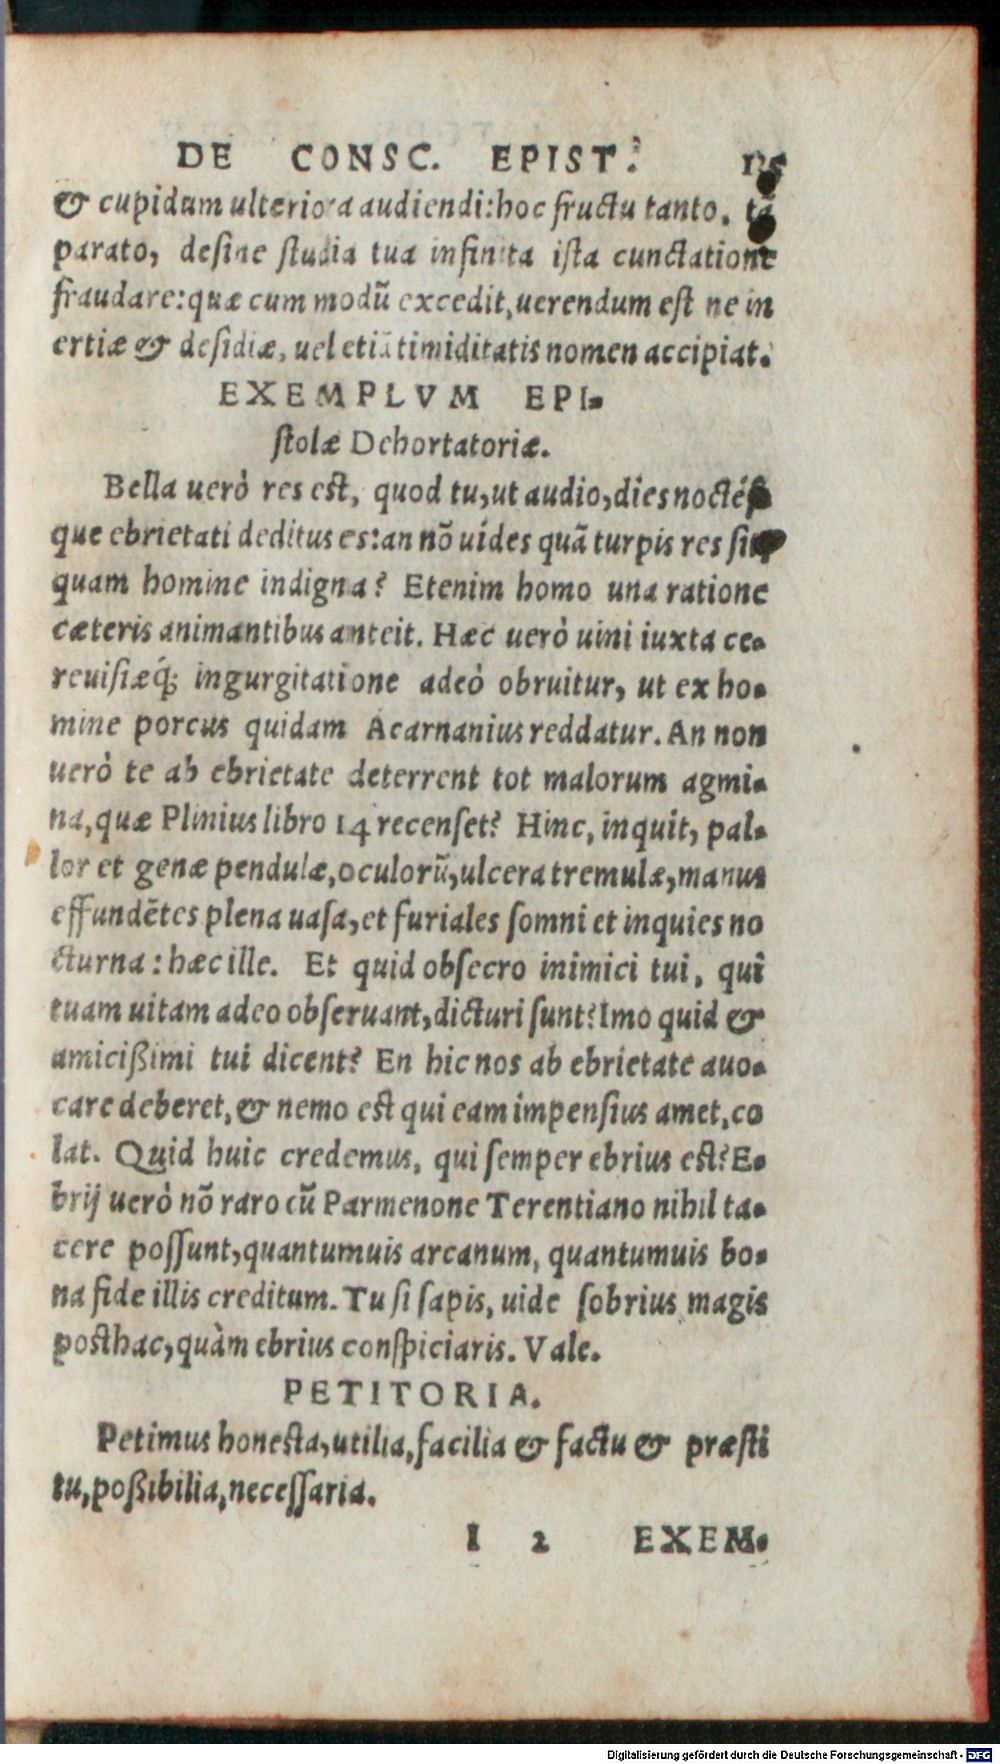 DE CONSC. EPIST.
& cupidum ulteriora audiendi: hoc fructu tanto, tã
parato, desine studia tua infinita ista cunctatione
fraudare: quæ cum modũ excedit, uerendum est ne in
ertiæ & desidiæ, uel etiã timiditatis nomen accipiat.
EXEMPLVM EPI-
stolæ Dehortatoriæ.
Bella uerò res est, quod tu, ut audio, dies noctés
que ebrietati deditus es: an nõ uides quã turpis res sit
quam homine indigna? Etenim homo una ratione
cæteris animantibus anteit. Hæc uerò uini iuxta ce-
reuisiæq́; ingurgitatione adeò obruitur, ut ex ho-
mine porcus quidam Acarnanius reddatur. An non
uerò te ab ebrietate deterrent tot malorum agmi-
na, quæ Plinius libro 14 recenset? Hinc, inquit, pal-
lor et genæ pendulæ, oculorũ, ulcera tremulæ, manus
effundẽtes plena uasa, et furiales somni et inquies no
cturna: hæc ille. Et quid obsecro inimici tui, qui
tuam uitam adeo obseruant, dicturi sunt? Imo quid &
amicißimi tui dicent? En hic nos ab ebrietate auo-
care deberet, & nemo est qui eam impensius amet, co
lat. Quid huic credemus, qui semper ebrius est? E-
brij uerò nõ raro cũ Parmenone Terentiano nihil ta-
cere possunt, quantumuis arcanum, quantumuis bo-
na fide illis creditum. Tu si sapis, uide sobrius magis
posthac, quàm ebrius conspiciaris. Vale.
PETITORIA.
Petimus honesta, utilia, facilia & factu & præsti
tu, poßibilia, necessaria.
I 2 EXEM-
Digitalisierung gefördert durch die Deutsche Forschungsgemeinschaft - DFG